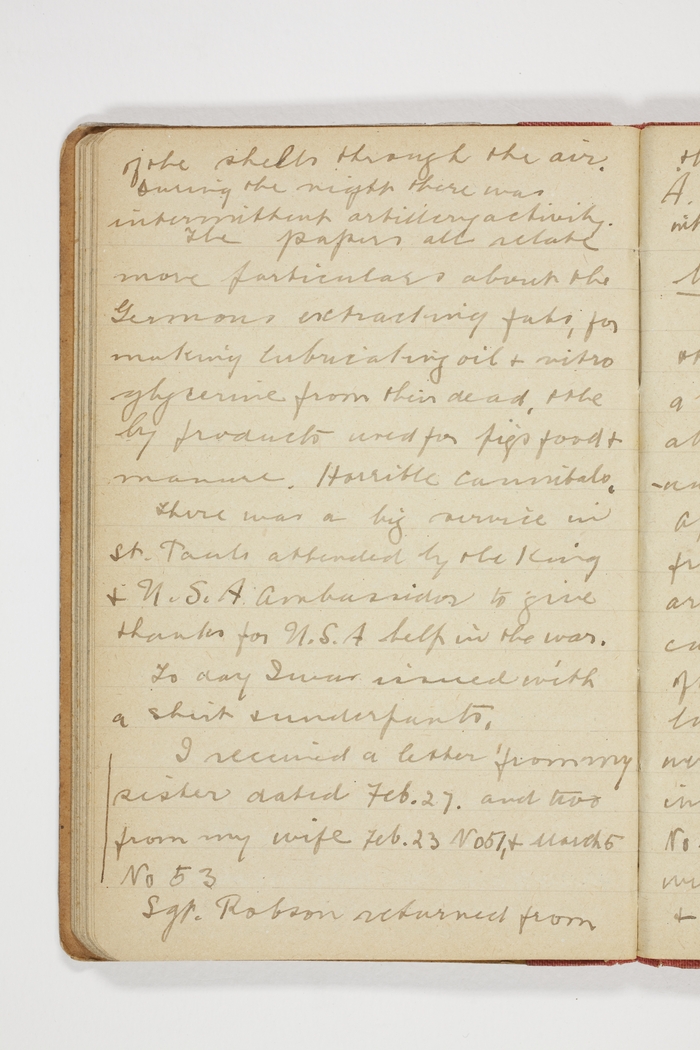 of the shells through the air.
During the night there was
intermittent artillery activity.
The papers all relate
more particulars about the
Germans extracting fats, for
making lubricating oil & nitro
glycerine from their dead, & the
by products used for pigs food &
manure. Horrible cannibals.
There was a big service in
St. Pauls attended by the King
& U.S.A ambassidor to give
thanks for U.S.A help in the war.
To day I was issued with
a shirt & underpants.
I received a letter from my
sister dated Feb. 27. and two
from my wife Feb. 23 No 51, & March 5
No 53
Sgt. Robson returned from